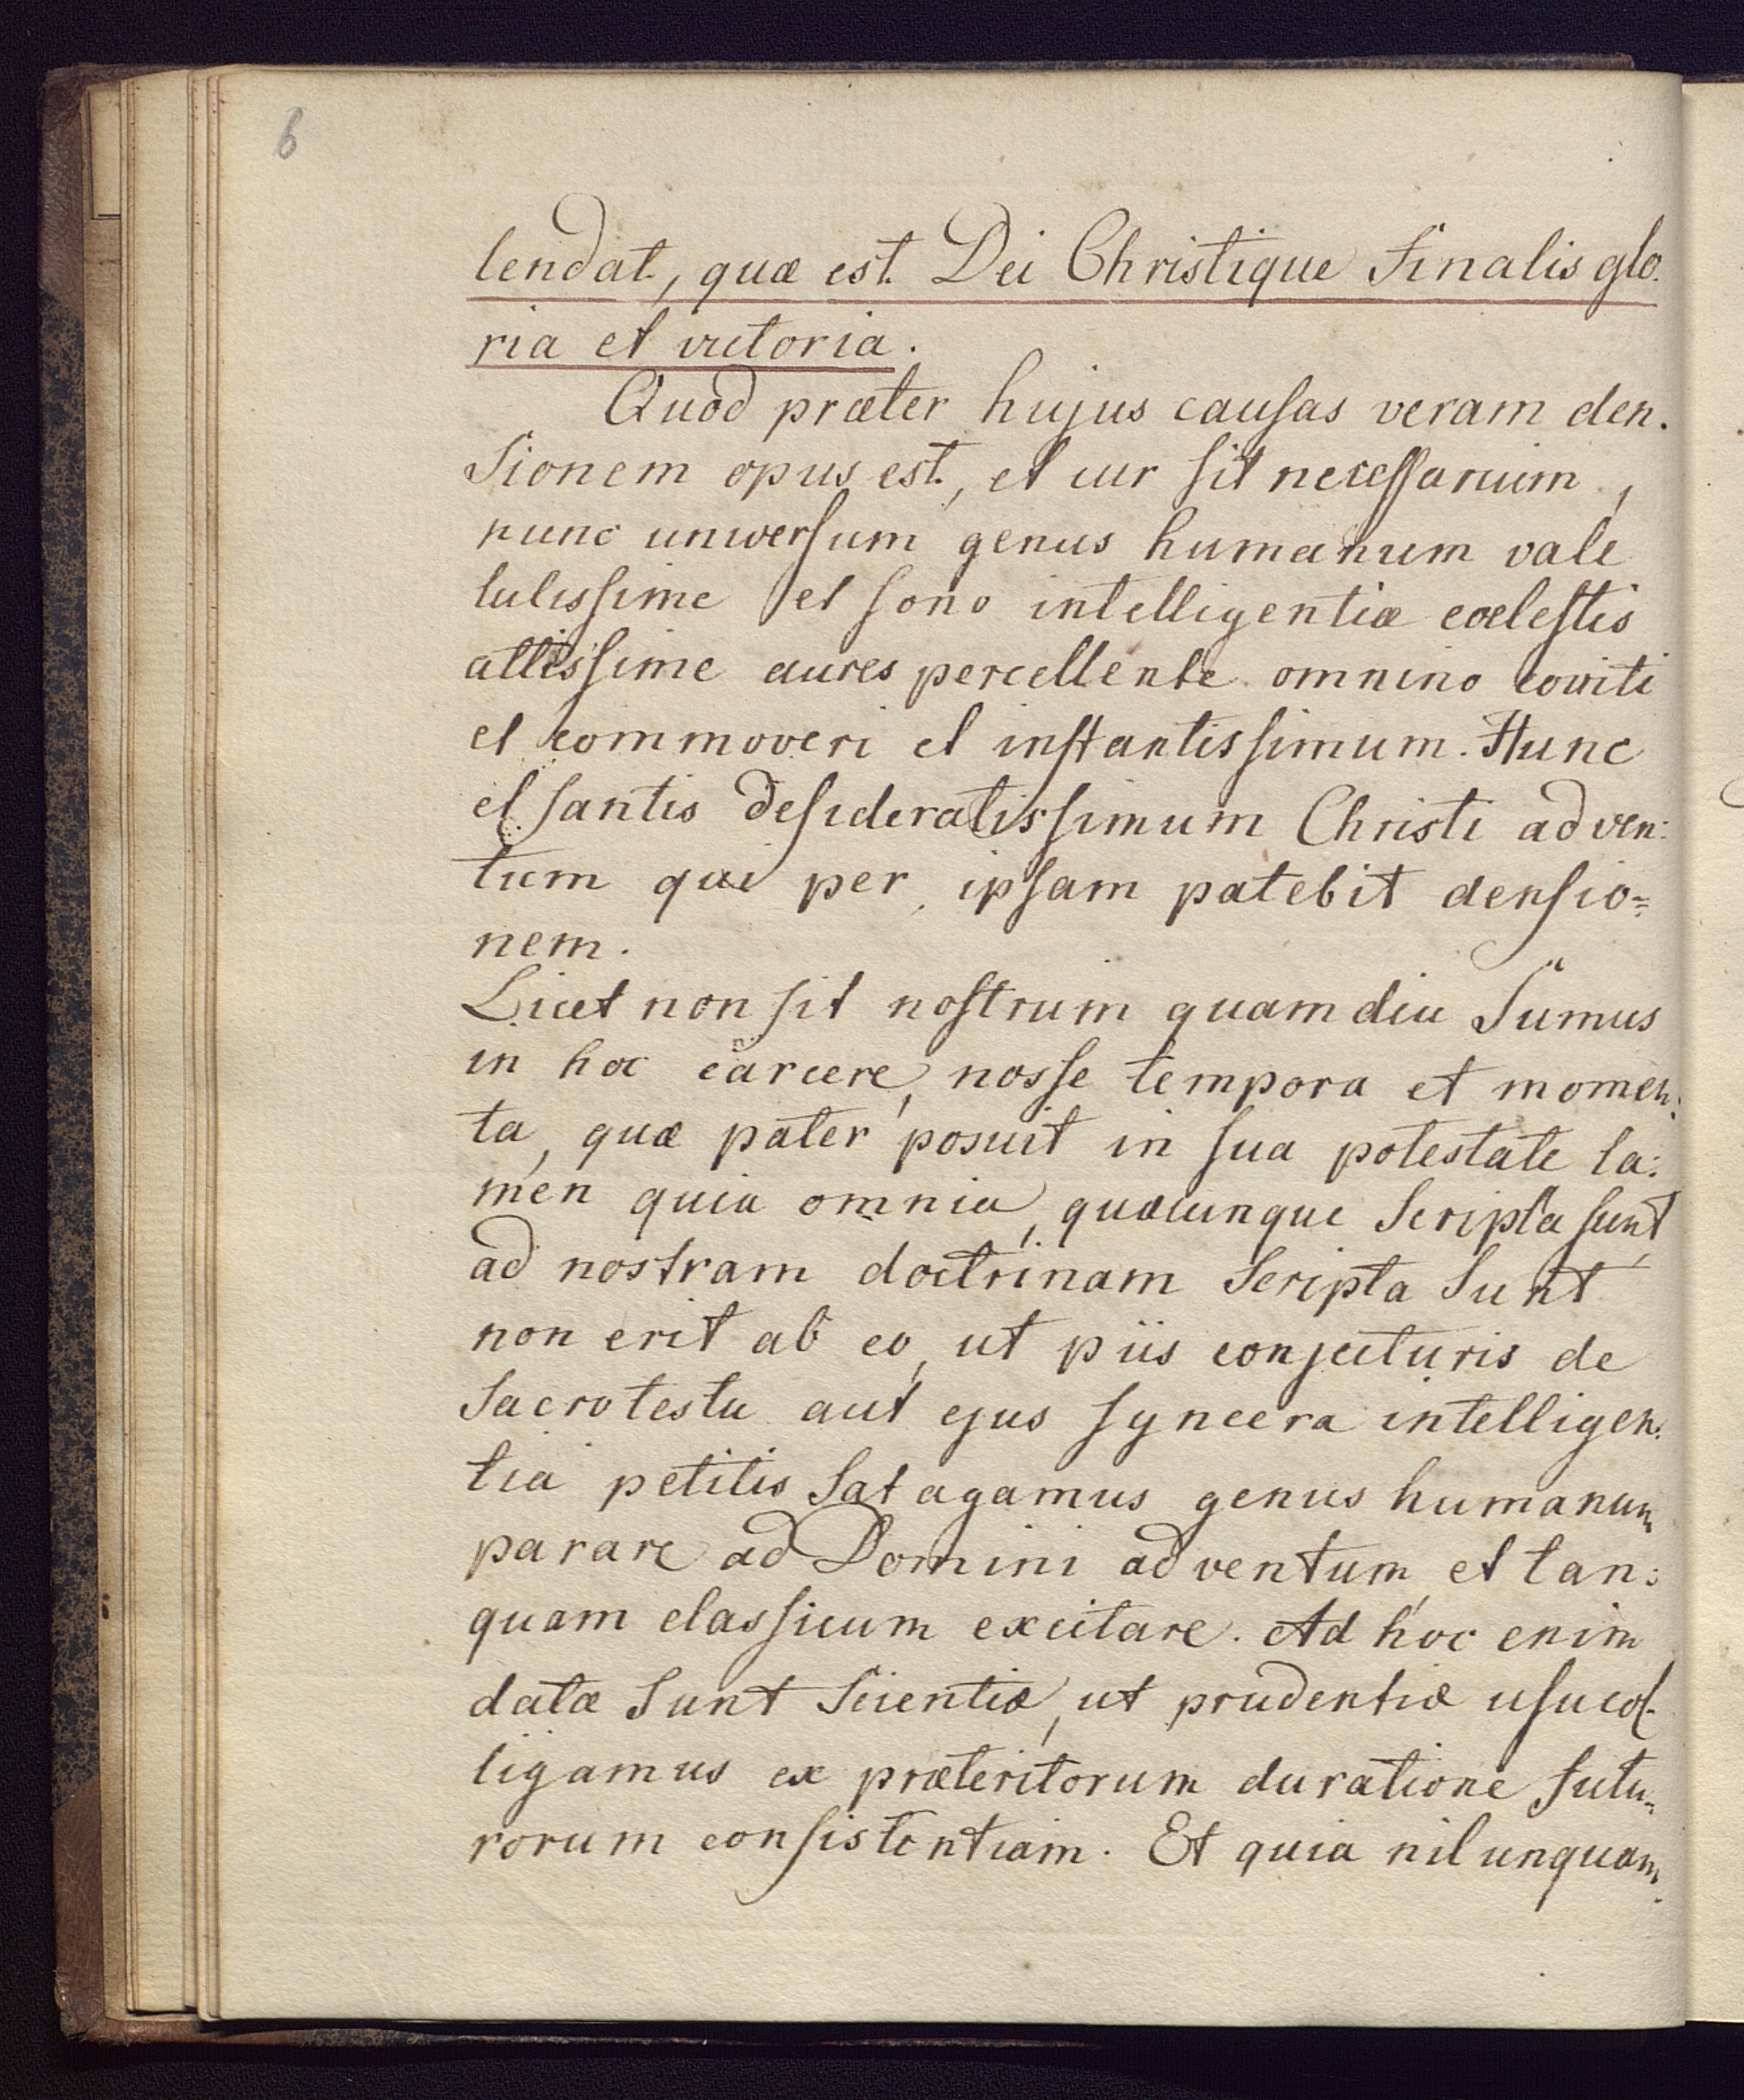 6
lendat, quæ est Dei Christique Finalis glo.
ria et victoria.
Quod præter hujus causas veram den.
sionem opus est, et cur sit necessarium,
nunc universum genus humanum vale
lulissime et sono intelligentiæ cœlestis
altissime aures percellente omnino
et commoveri et instantissimum. Hunc
et santis desideratissimum Christi adven:
tum qui per ipsam patebit densio=
nem.
Licet non sit nostrum quamdiu sumus
in hoc carcere, nosse tempora et momen:
ta, quæ pater posuit in sua potestate ta:
men quia omnia, quæcunque scripta sunt
ad nostram doctrinam scripta sunt
non erit ab eo, ut piis conjecturis de
sacrotestu aut ejus syncera intelligen:
tia petitis satagamus genus humanum
parare ad Domini adventum et tan:
quam classicum excitare. Ad hoc enim
datæ sunt scientiæ, ut prudentiæ usu col-
ligamus ex præteritorum duratione futu-
rorum consistentiam. Et quia nil unquam